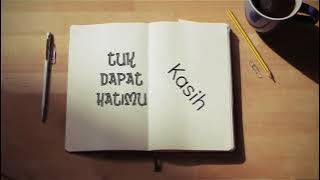 TUK
DAPAT
HATIMU
Kasih